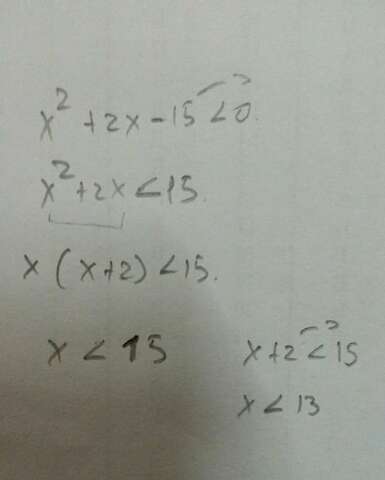 x² + 2x - 15 < 0.
x² + 2x < 15.
x (x+2) < 15.
x < 15 x+2 < 15
x < 13